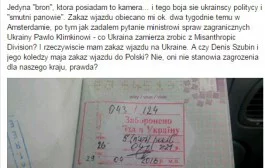 Jedyna "bron", ktora posiadam to kamera... i tego boja sie ukrainscy politycy i
"smutni panowie". Zakaz wjazdu obiecano mi ok dwa tygodnie temu w
Amsterdamie, po tym jak zadalem pytanie ministrowi spraw zagranicznych
Ukrainy Pawlo Klimkinowi - co Ukraina zamierza zrobic z Misanthropic
Division? I rzeczywiscie mam zakaz wjazdu na Ukraine. A czy Denis Szubin i
jego koledzy maja zakaz wjazdu do Polski? Nie, oni nie stanowia zagrozenia
dla naszego kraju, prawda?
043/124
Заборонено
в'їзд в Україну
5
26 05 2016